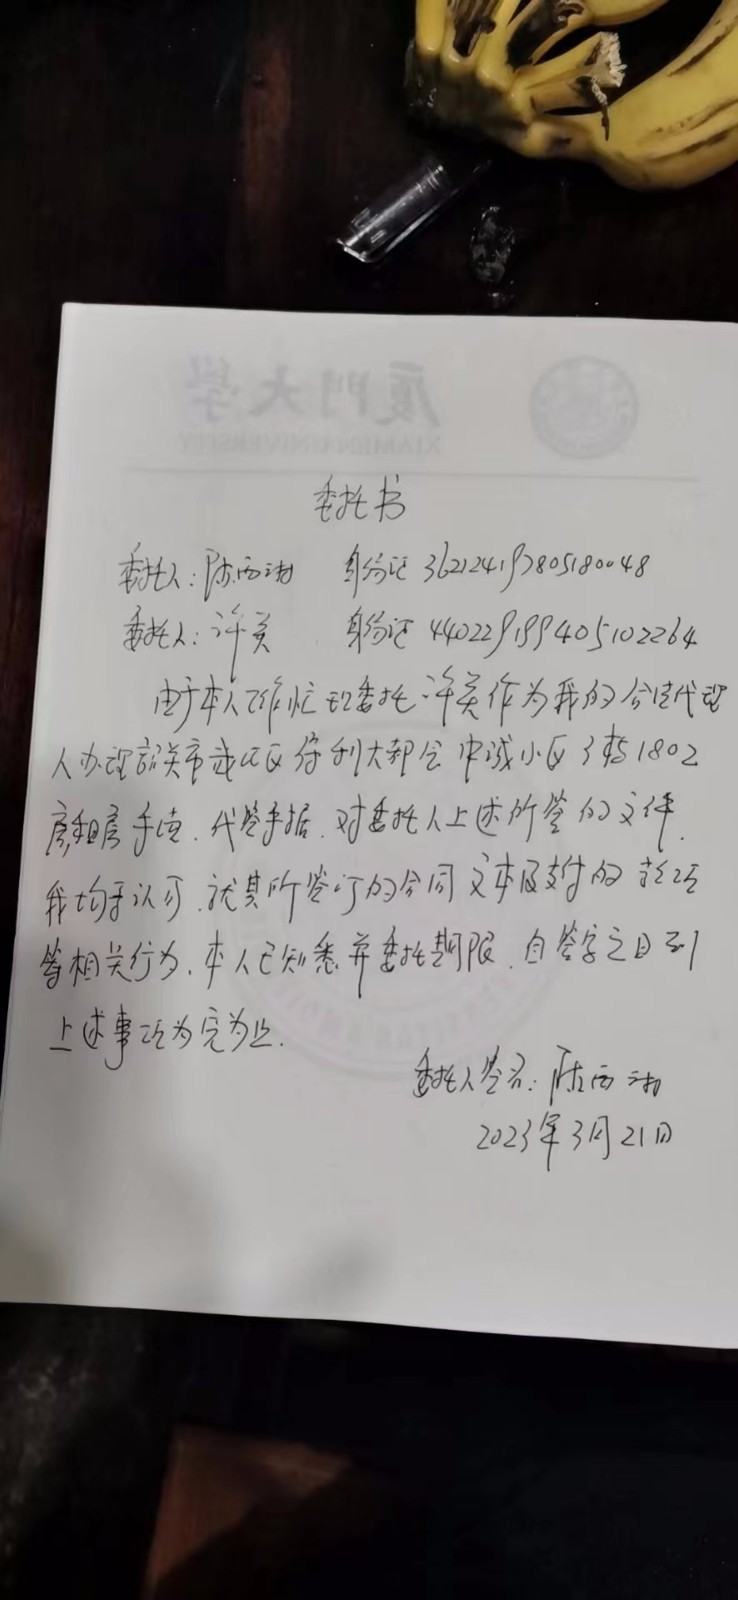 厦門大學
XIAMEN UNIVERSITY
委托书
委托人:陈西湘 身份证 362124197805180048
委托人:许英 身份证 440229199405102264
由于本人工作忙现委托许英作为我的合法代理
人办理韶关市武江区保利大都会中诚小区3栋1802
房租房手续、代签手据、对委托人上述所签的文件、
我均予认可、就其所签订的合同文本及支付的款项
等相关行为、本人已知悉并委托期限、自签字之日到
上述事项为完为止.
委托人签名:陈西湘
2023年3月21日